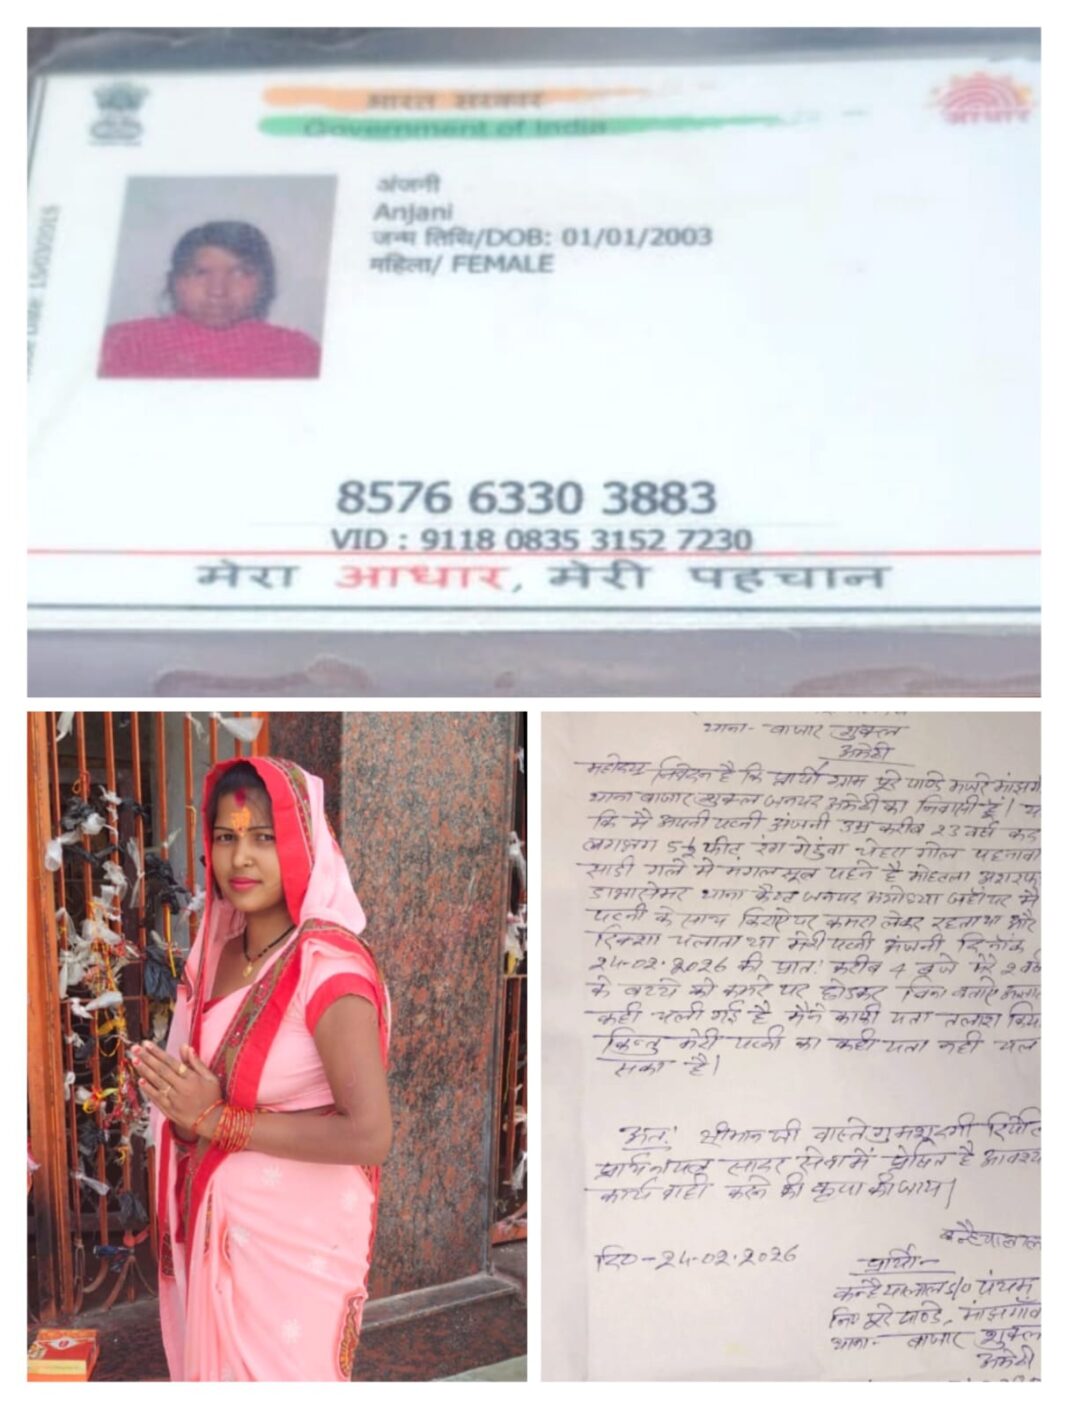 भारत सरकार
Government of India
आधार
अंजनी
Anjani
जन्म तिथि/DOB: 01/01/2003
महिला/ FEMALE
Date: 15/03/2015
8576 6330 3883
VID : 9118 0835 3152 7230
मेरा आधार, मेरी पहचान
थाना- बाजार शुक्ल
अमेठी
महोदय निवेदन है कि प्रार्थी ग्राम पूरे पाण्डे मजरे मांझगाँ
थाना बाजार शुक्ल जनपद अमेठी का निवासी हूँ।
कि मै अपनी पत्नी अंजनी उम्र करीब 23 वर्ष कद
लगभग 5 फीट रंग गेहुंवा चेहरा गोल पहनावा
साडी गले मे मंगलसूत्र पहने है मोहल्ला
डाभासेमर थाना कैण्ट जनपद अयोध्या जहाँ पर मै
पत्नी के साथ किराये पर कमरा लेकर रहता था और
रिक्शा चलाता था मेरी पत्नी अंजनी दिनांक
24-02-2026 की प्रातः करीब 4 बजे मेरे 2 वर्ष
के बच्चे को कमरे पर छोडकर बिना बताए
कही चली गई है मैने काफी पता तलाश किय
किन्तु मेरी पत्नी का कही पता नही चल
सका है।
अतः श्रीमान जी वास्ते गुमशुदगी रिपोर्ट
प्रार्थना पत्र सादर सेवा में प्रेषित है आवश्य
कार्य वाही करने की कृपा की जाय।
कन्हैयालाल
दि०-24-02-2026
प्रार्थी-
कन्हैयालाल s/o पंचम
नि० पूरे पाण्डे, मांझगाँव
थाना- बाजार शुक्ल
अमेठी